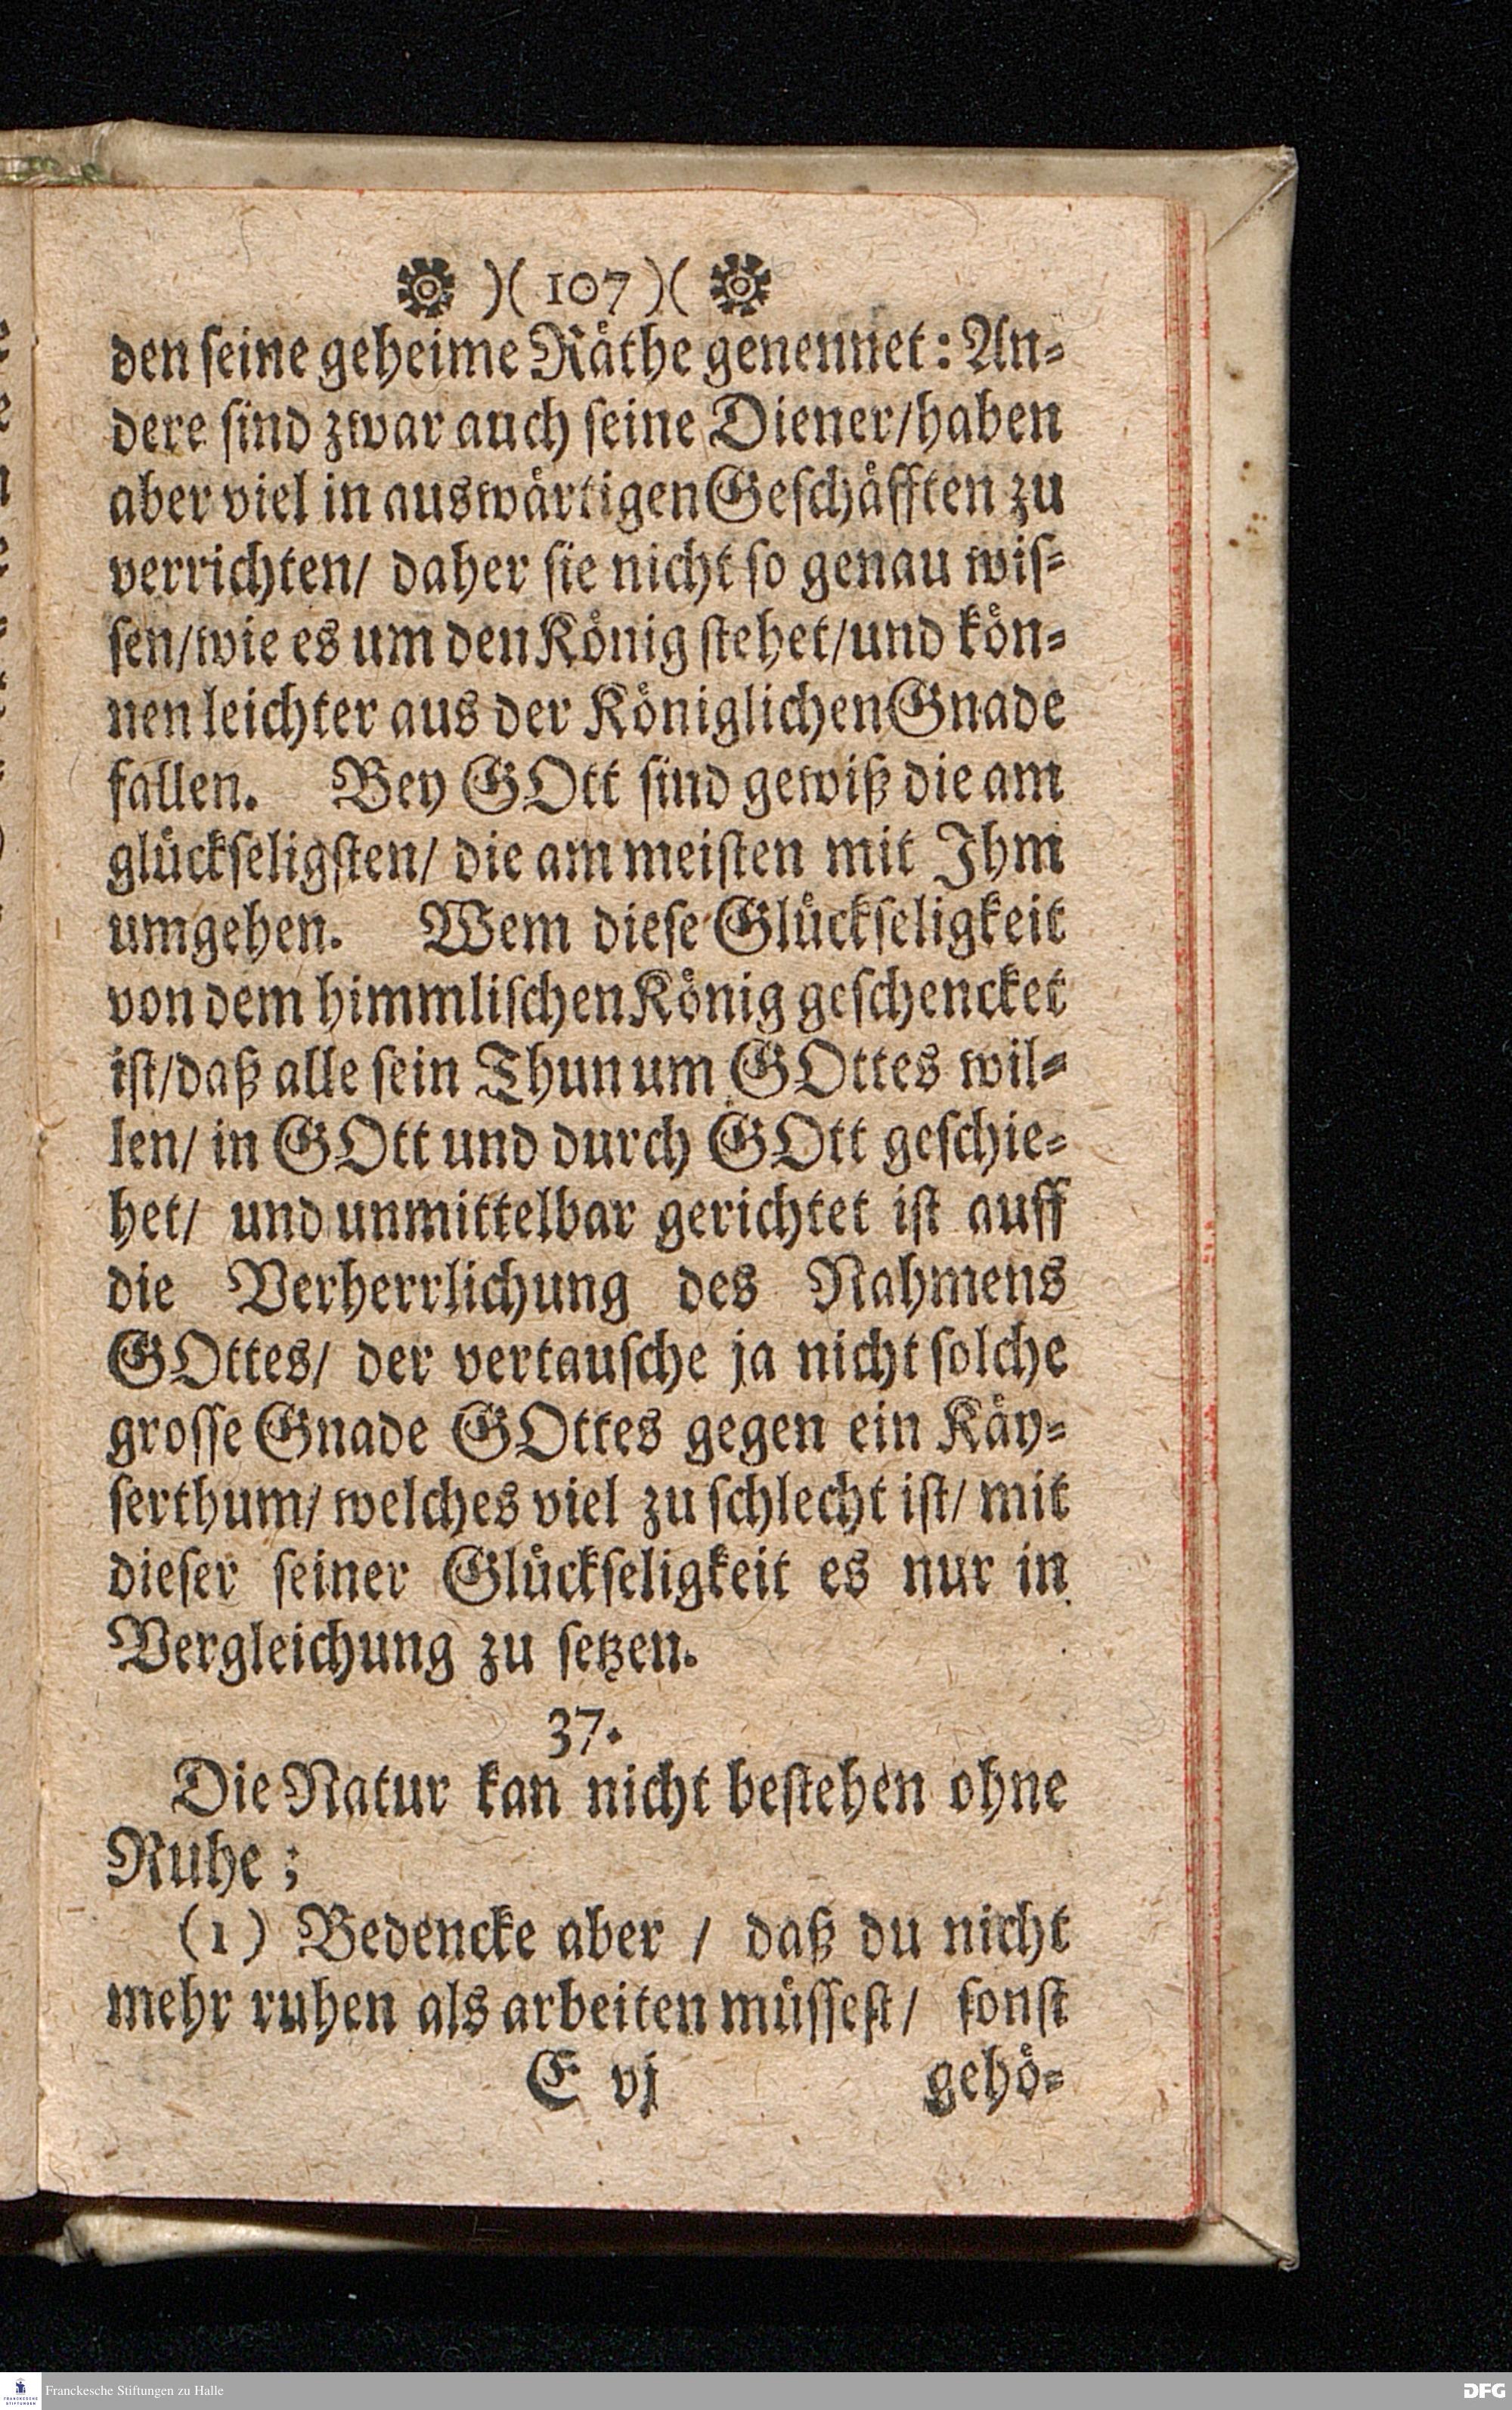 )( 107 )(
den ſeine geheime Raͤthe genennet: An-
dere ſind zwar auch ſeine Diener/haben
aber viel in auswaͤrtigen Geſchaͤfften zu
verrichten/ daher ſie nicht ſo genau wiſ-
ſen/wie es um den Koͤnig ſtehet/und koͤn-
nen leichter aus der Koͤniglichen Gnade
fallen. Bey GOtt ſind gewiß die am
gluͤckſeligſten/ die am meiſten mit Ihm
umgehen. Wem dieſe Gluͤckſeligkeit
von dem himmliſchen Koͤnig geſchencket
iſt/daß alle ſein Thun um GOttes wil-
len/ in GOtt und durch GOtt geſchie-
het/ und unmittelbar gerichtet iſt auff
die Verherrlichung des Nahmens
GOttes/ der vertauſche ja nicht ſolche
groſſe Gnade GOttes gegen ein Kaͤy-
ſerthum/ welches viel zu ſchlecht iſt/ mit
dieſer ſeiner Gluͤckſeligkeit es nur in
Vergleichung zu ſetzen.
37.
Die Natur kan nicht beſtehen ohne
Ruhe;
(1) Bedencke aber / daß du nicht
mehr ruhen als arbeiten muͤſſeſt/ ſonſt
E vj gehoͤ-
Franckesche Stiftungen zu Halle
DFG